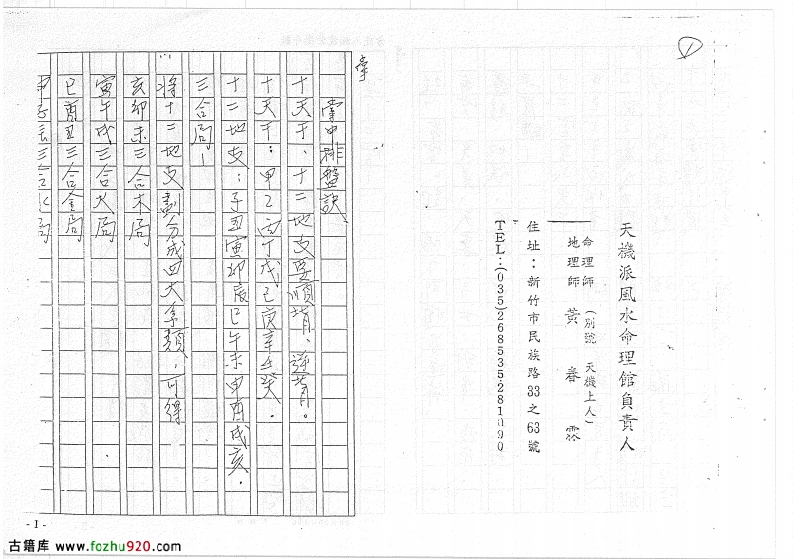 ①
天機派風水命理館負責人
命理師
地理師
黃春霖
(別號 天機上人)
住址：新竹市民族路33之63號
TEL：(035)268535.281090
掌中排盤訣
十天干、十二地支要順背、逆背。
十天干：甲乙丙丁戊己庚辛壬癸．
十二地支：子丑寅卯辰巳午未申酉戌亥．
三合局—
將十二地支劃分成四大類，可得
亥卯未三合木局
寅午戌三合火局
巳酉丑三合金局
申子辰三合水局
-1-
古籍库 www.fozhu920.com